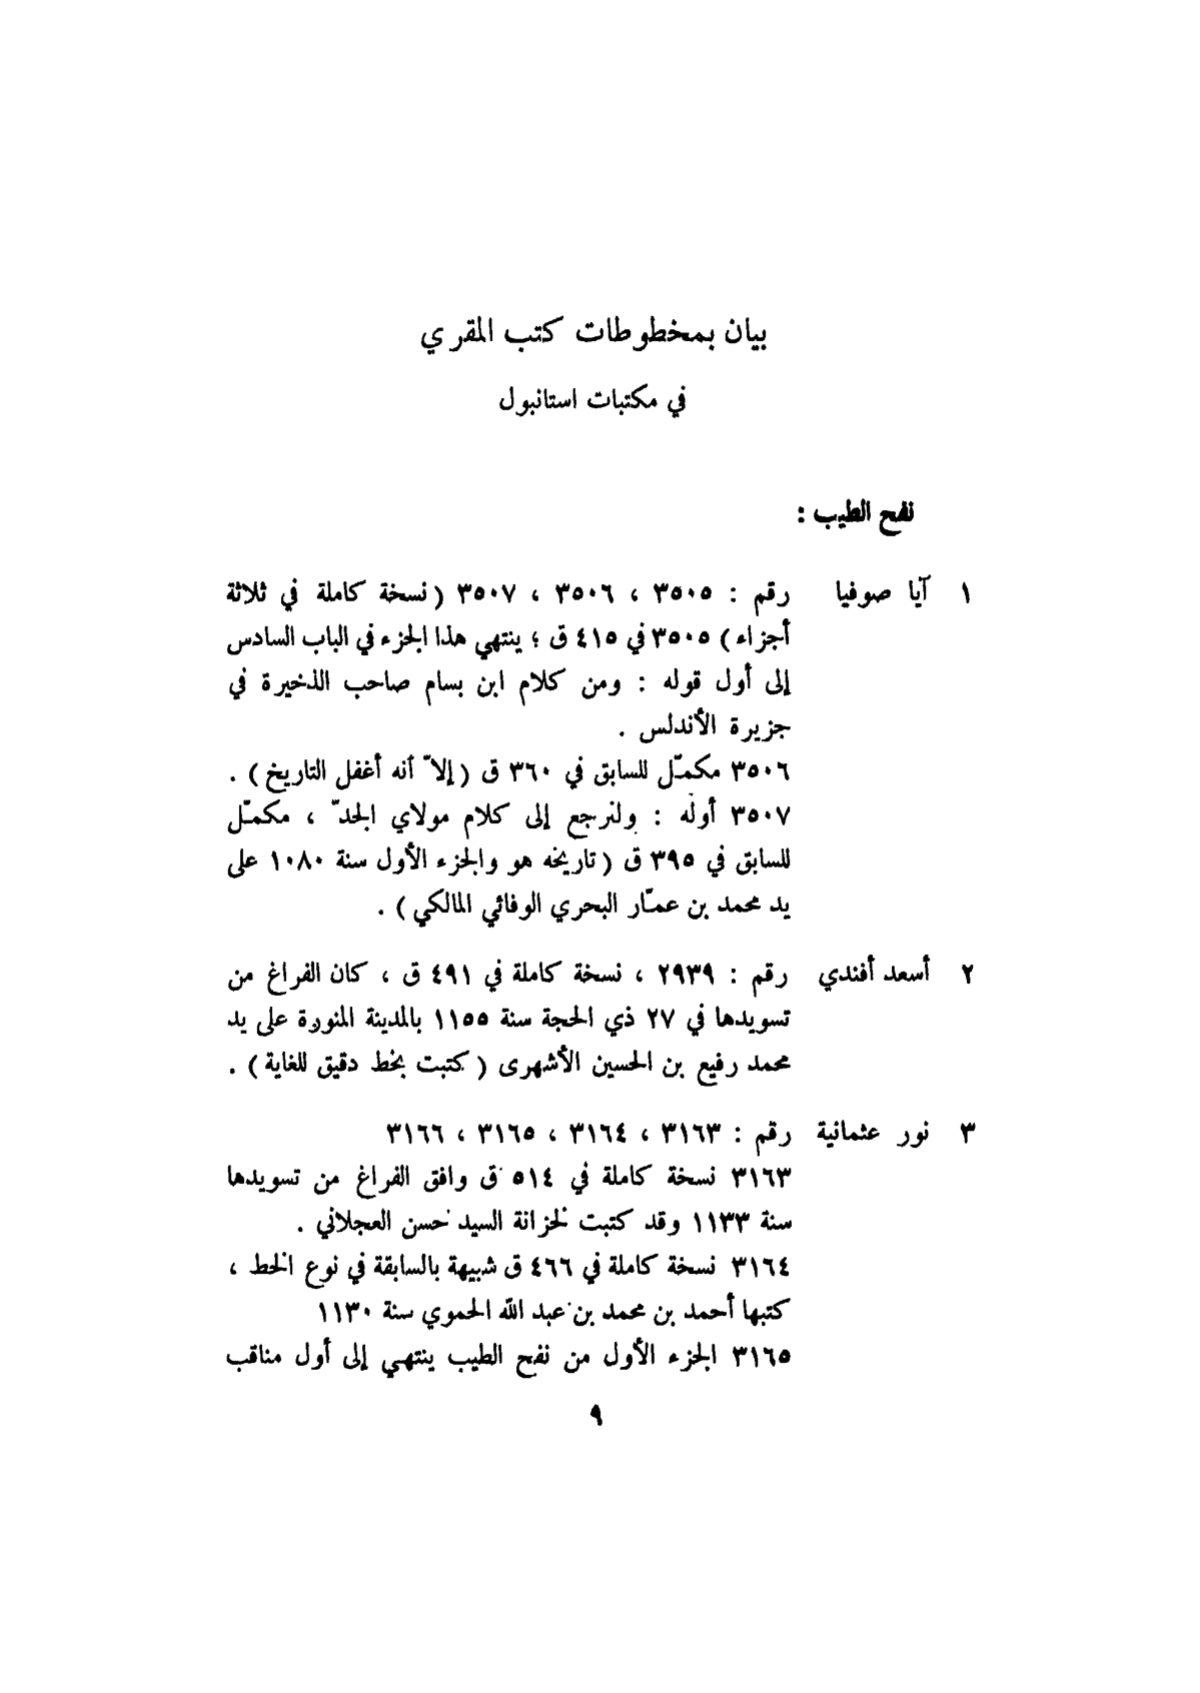 بيان بمخطوطات كتب المقري
في مكتبات استانبول
نفح الطيب :
١ آيا صوفيا رقم : ٣٥٠٥ ، ٣٥٠٦ ، ٣٥٠٧ ( نسخة كاملة في ثلاثة
أجزاء ) ٣٥٠٥ في ٤١٥ ق ؛ ينتهي هذا الجزء في الباب السادس
إلى أول قوله : ومن كلام ابن بسام صاحب الذخيرة في
جزيرة الأندلس .
٣٥٠٦ مكمّل للسابق في ٣٦٠ ق ( إلاّ أنه أغفل التاريخ ) .
٣٥٠٧ أوله : ولنرجع إلى كلام مولاي الجدّ ، مكمّل
للسابق في ٣٩٥ ق ( تاريخه هو والجزء الأول سنة ١٠٨٠ على
يد محمد بن عمّار البحري الوفائي المالكي ) .
٢ أسعد أفندي رقم : ٢٩٣٩ ، نسخة كاملة في ٤٩١ ق ، كان الفراغ من
تسويدها في ٢٧ ذي الحجة سنة ١١٥٥ بالمدينة المنورة على يد
محمد رفيع بن الحسين الأشهرى ( كتبت بخط دقيق للغاية ) .
٣ نور عثمانية رقم : ٣١٦٣ ، ٣١٦٤ ، ٣١٦٥ ، ٣١٦٦
٣١٦٣ نسخة كاملة في ٥١٤ ق وافق الفراغ من تسويدها
سنة ١١٣٣ وقد كتبت لخزانة السيد حسن العجلاني .
٣١٦٤ نسخة كاملة في ٤٦٦ ق شبيهة بالسابقة في نوع الخط ،
كتبها أحمد بن محمد بن عبد الله الحموي سنة ١١٣٠
٣١٦٥ الجزء الأول من نفح الطيب ينتهي إلى أول مناقب
٩